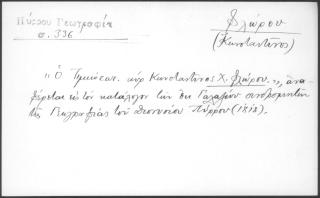 Πύρρου Γεωγραφία
σ. 336
Φλώρου
(Κωνσταντῖνος)
« Ὁ Τιμιώτατ. κὺρ Κωνσταντῖνος Χ. Φλώρου. », ἀνα-
φέρεται εἰς τὸν κατάλογον τῶν ἐκ Γαλαζίου συνδρομητῶν
τῆς Γεωγραφίας τοῦ Διονυσίου Πύρρου (1818).